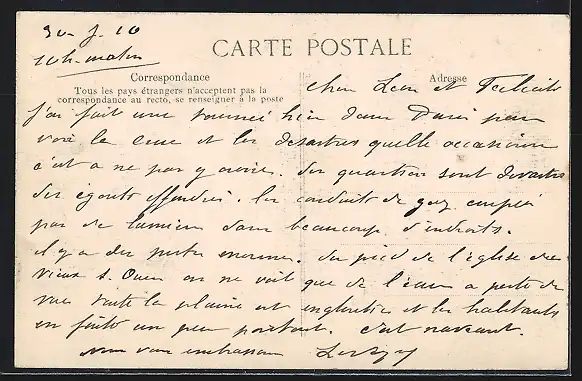 30-J-10
10h-matin
CARTE POSTALE
Correspondance
Adresse
Tous les pays étrangers n'acceptent pas la
correspondance au recto, se renseigner à la poste
Cher Leon et Felicité
j'ai fait une tournée hier dans Paris pour
voir la crue et les désastres quelle occasionne
c'est a ne pas y croire. des quartiers sont dévastés
des égouts effondrés. les conduits de gaz coupés
pas de lumière dans beaucoup d'endroits.
il y a des pertes énormes. du pied de l'église du
vieux S. Ouen on ne voit que de l'eau a perte de
vue toute la plaine est engloutie et les habitants
en fuite un peu partout. c'est navrant.
Nous vous embrassons